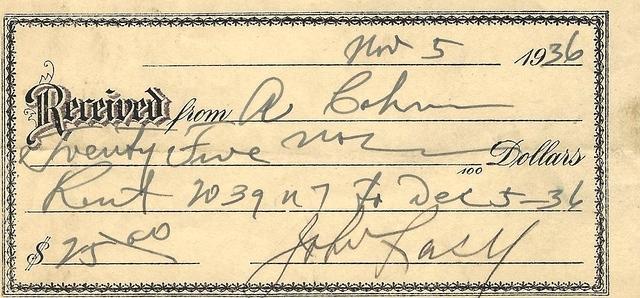 Nov 5 1936
Received from A Cohn
Twenty Five no/100 Dollars
Rent 2039 N 7 to Dec 5-36
$ 25 00 John